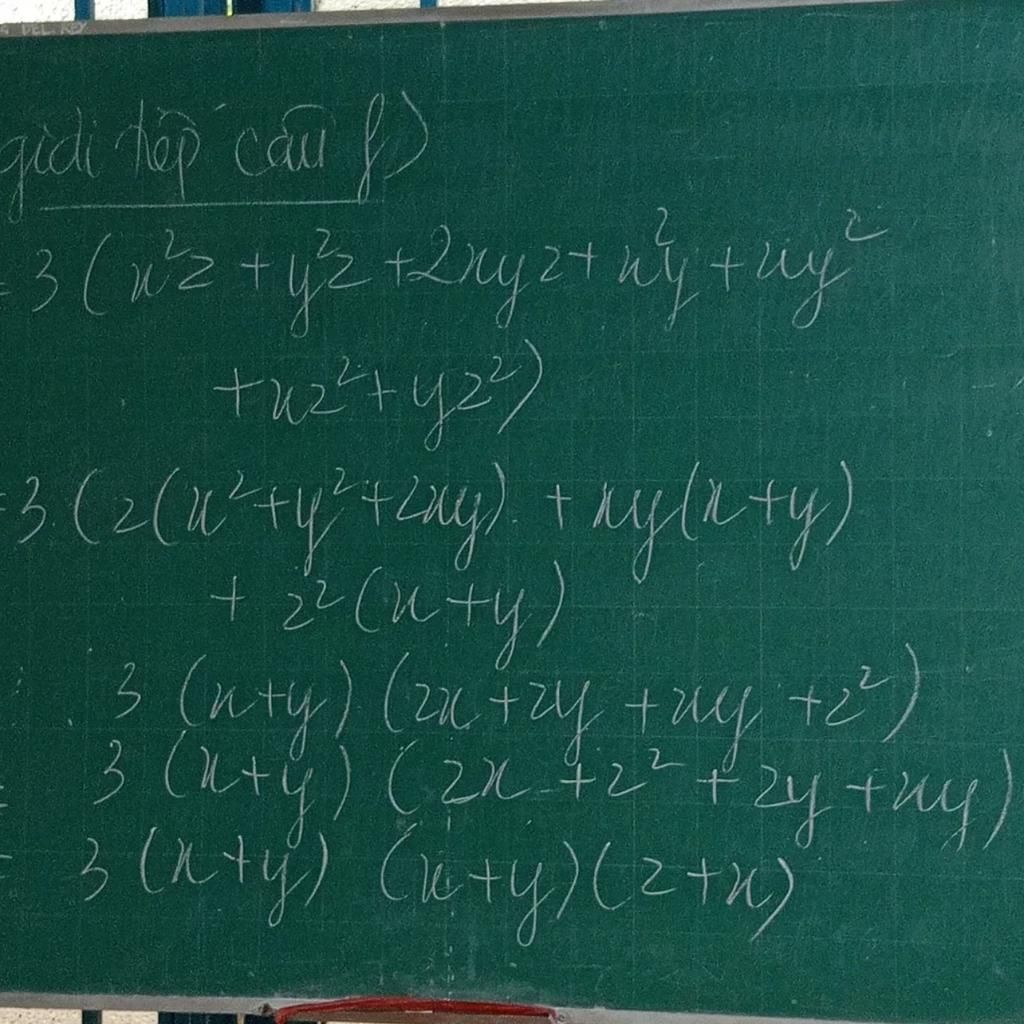 giải tiếp câu f)
= 3 (x²z + y²z + 2xyz + x²y + xy²
+ xz² + yz²)
= 3. (z(x² + y² + 2xy) + xy(x + y)
+ z² (x + y)
3 (x+y) (zx + zy + xy + z²)
= 3 (x+y) (zx + z² + zy + xy)
= 3 (x+y) (x+y)(z+x)